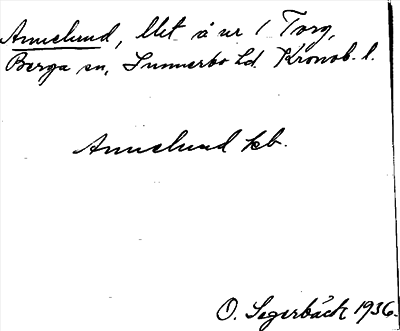 Annelund, llet å nr 1 Torg,
Berga sn, Sunnerbo hd. Kronob. l.
Annelund kb.
O. Segerbäck 1936.